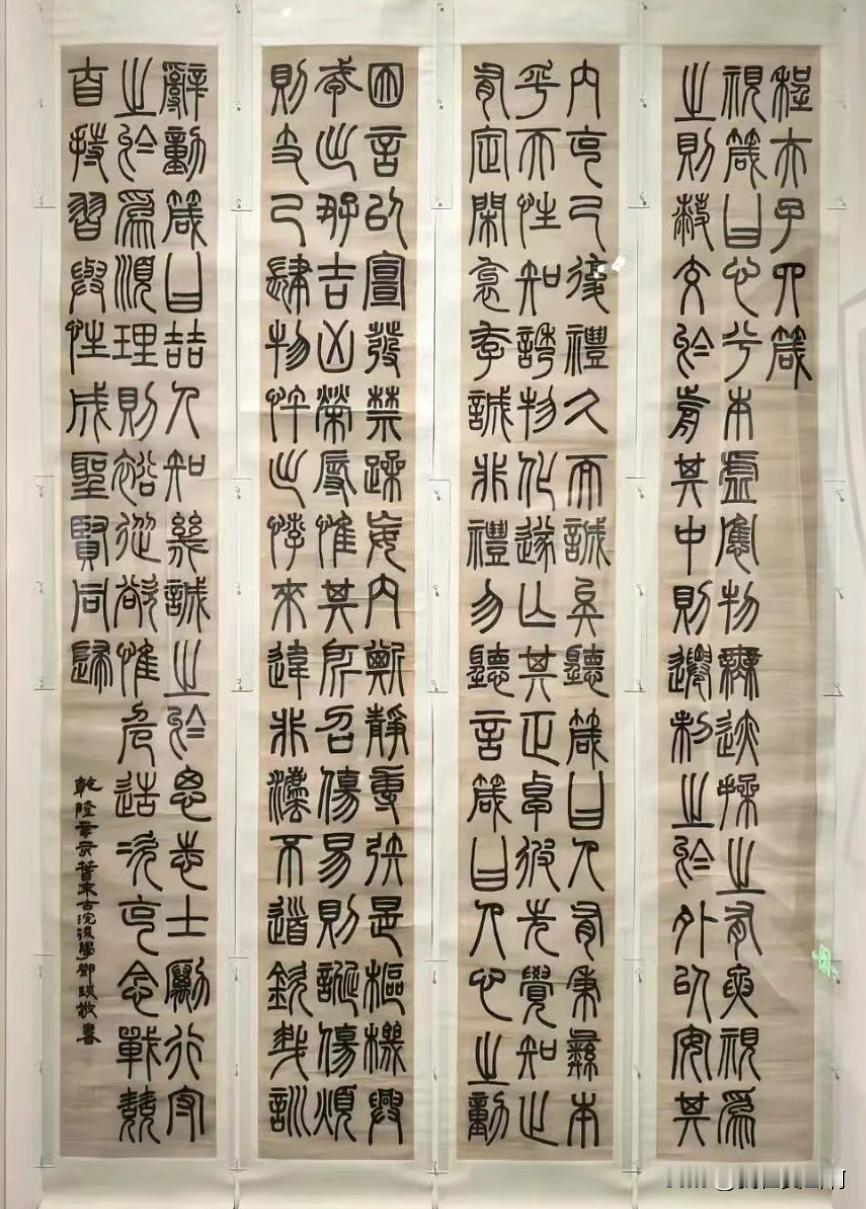 程夫子四箴
視箴曰心兮本虛應物無迹操之有要視為
之則蔽交於前其中則遷制之於外以安其
内克己復禮久而誠矣聽箴曰人有秉彝本
乎天性知誘物化遂亡其正卓彼先覺知止
有定閑邪存誠非禮勿聽言箴曰人心之動
因言以宣發禁躁妄内斯靜專矧是樞機興
戎出好吉凶榮辱惟其所召傷易則誕傷煩
則支己肆物忤出悖來違非灋不道欽哉訓
辭動箴曰喆人知幾誠之於思志士勵行守
之於為順理則裕從欲惟危造次克念戰兢
自持習與性成聖賢同歸
乾隆辛亥暮春古浣後學鄧琰敬書